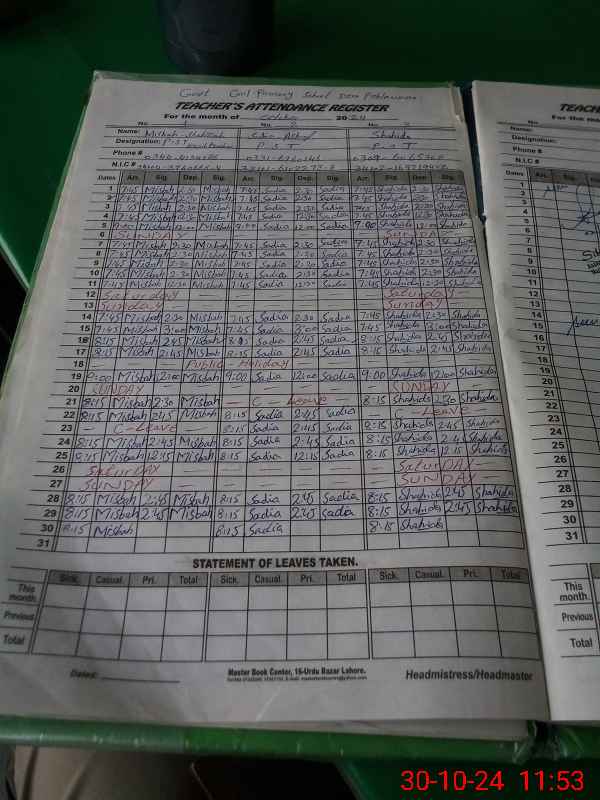 Govt Girl Primary School
TEACHER'S ATTENDANCE REGISTER
For the month of October 2024
No. 1 No. 2 No. 3
Name: Misbah Sadia Shahida
Designation: P.S.T P S T P S T
Phone #
N.I.C #
Dates Arr. Sig. Dep. Sig. Arr. Sig. Dep. Sig. Arr. Sig. Dep. Sig.
1 7:45 Misbah 2:30 Misbah 7:45 Sadia 2:30 Sadia 7:45 Shahida 2:30 Shahida
2 7:45 Misbah 2:30 Misbah 7:45 Sadia 2:30 Sadia 7:45 Shahida 2:30 Shahida
3 7:45 Misbah 2:30 Misbah 7:45 Sadia 2:30 Sadia 7:45 Shahida 2:30 Shahida
4 7:45 Misbah Misbah 7:45 Sadia Sadia 7:45 Shahida Shahida
5 Misbah Misbah 9:00 Sadia 12:00 Sadia 9:00 Shahida Shahida
6 SUNDAY SUNDAY
7 7:45 Misbah 2:30 Misbah 7:45 Sadia 2:30 Sadia 7:45 Shahida 2:30 Shahida
8 7:45 Misbah 2:30 Misbah 7:45 Sadia 2:30 Sadia 7:45 Shahida 2:30 Shahida
9 7:45 Misbah 2:30 Misbah 7:45 Sadia 2:30 Sadia 7:45 Shahida 2:30 Shahida
10 7:45 Misbah 2:30 Misbah 7:45 Sadia 2:30 Sadia 7:45 Shahida 2:30 Shahida
11 7:45 Misbah 12:30 Misbah 7:45 Sadia 12:30 Sadia 7:45 Shahida 12:30 Shahida
12 Saturday — Saturday —
13 Sunday — Sunday —
14 7:45 Misbah 2:30 Misbah 7:45 Sadia 2:30 Sadia 7:45 Shahida 2:30 Shahida
15 7:45 Misbah 3:00 Misbah 7:45 Sadia 3:00 Sadia 7:45 Shahida 3:00 Shahida
16 8:15 Misbah 2:45 Misbah 8:15 Sadia 2:45 Sadia 8:15 Shahida 2:45 Shahida
17 8:15 Misbah 2:45 Misbah 8:15 Sadia 2:45 Sadia 8:15 Shahida 2:45 Shahida
18 — Public - Holiday —
19 9:00 Misbah 12:00 Misbah 9:00 Sadia 12:00 Sadia 9:00 Shahida 12:00 Shahida
20 SUNDAY — SUNDAY —
21 8:15 Misbah 2:30 Misbah — C - Leave — 8:15 Shahida 2:30 Shahida
22 8:15 Misbah 2:45 Misbah 8:15 Sadia 2:45 Sadia — C - Leave —
23 — C - Leave — 8:15 Sadia 2:45 Sadia 8:15 Shahida 2:45 Shahida
24 8:15 Misbah 2:45 Misbah 8:15 Sadia 2:45 Sadia 8:15 Shahida 2:45 Shahida
25 8:15 Misbah 12:15 Misbah 8:15 Sadia 12:15 Sadia 8:15 Shahida 12:15 Shahida
26 SaturDAY — SaturDAY —
27 SUNDAY — SUNDAY —
28 8:15 Misbah 2:45 Misbah 8:15 Sadia 2:45 Sadia 8:15 Shahida 2:45 Shahida
29 8:15 Misbah 2:45 Misbah 8:15 Sadia 2:45 Sadia 8:15 Shahida 2:45 Shahida
30 8:15 Misbah 8:15 Sadia 8:15 Shahida
31
STATEMENT OF LEAVES TAKEN.
Sick. Casual. Pri. Total Sick. Casual. Pri. Total Sick. Casual. Pri. Total
This month.
Previous
Total
Dates:
Master Book Center, 16-Urdu Bazar Lahore.
Headmistress/Headmaster
TEACH
For the mon
No.
Name:
Designation:
Phone #
N.I.C #
Dates Arr. Sig.
1
2
3
4
5
6
7
8
9
10
11
12
13
14
15
16
17
18
19
20
21
22
23
24
25
26
27
28
29
30
31
Sick.
This month.
Previous
Total
30-10-24 11:53